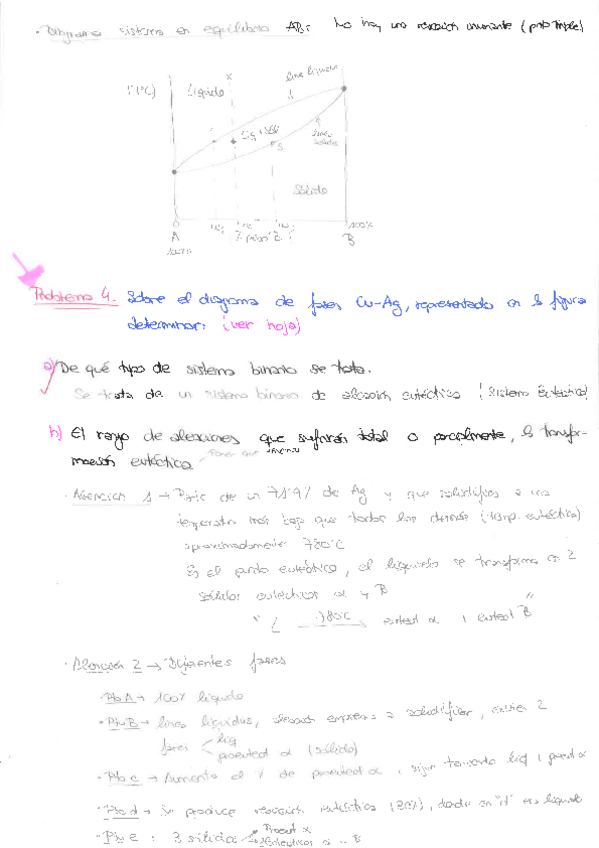 · Diagrama sistema en equilibrio AB: No hay una reacción invariante (pto triple)
T(°C)
Líquido
x
línea líquidus
Liq + Sól
línea solidus
S
Sólido
A
B
100%
100%
Problema 4. Sobre el diagrama de fases Cu-Ag, representado en la figura
determinar: (ver hoja)
a) De qué tipo de sistema binario se trata.
Se trata de un sistema binario de aleación eutéctica (Sistema Eutéctico)
b) El rango de aleaciones que sufrirán total o parcialmente, la transfor-
mación eutéctica
· Aleación 1 → Parte de un 71'9% de Ag y que solidifica a una
temperatura más baja que todas las demás (temp. eutéctica)
aproximadamente 780°C
Es el punto eutéctico, el líquido se transforma en 2
sólidos eutécticos α y B
" L 780°C eutect α eutect B "
· Aleación 2 → Diferentes fases
· Pto A → 100% líquido
· Pto B → línea líquidus, aleación empieza a solidificar, existen 2
fases liq
proeutect α (sólido)
· Pto C → Aumenta el % de proeutect α, sigue teniendo liq y proeut α
· Pto d → Se produce reacción eutéctica, donde en "d" es líquido
· Pto E : 3 sólidos Proeut α
Eutécticos α B